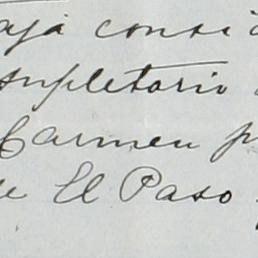 consi
supletorio
Carmen p
de El Paso